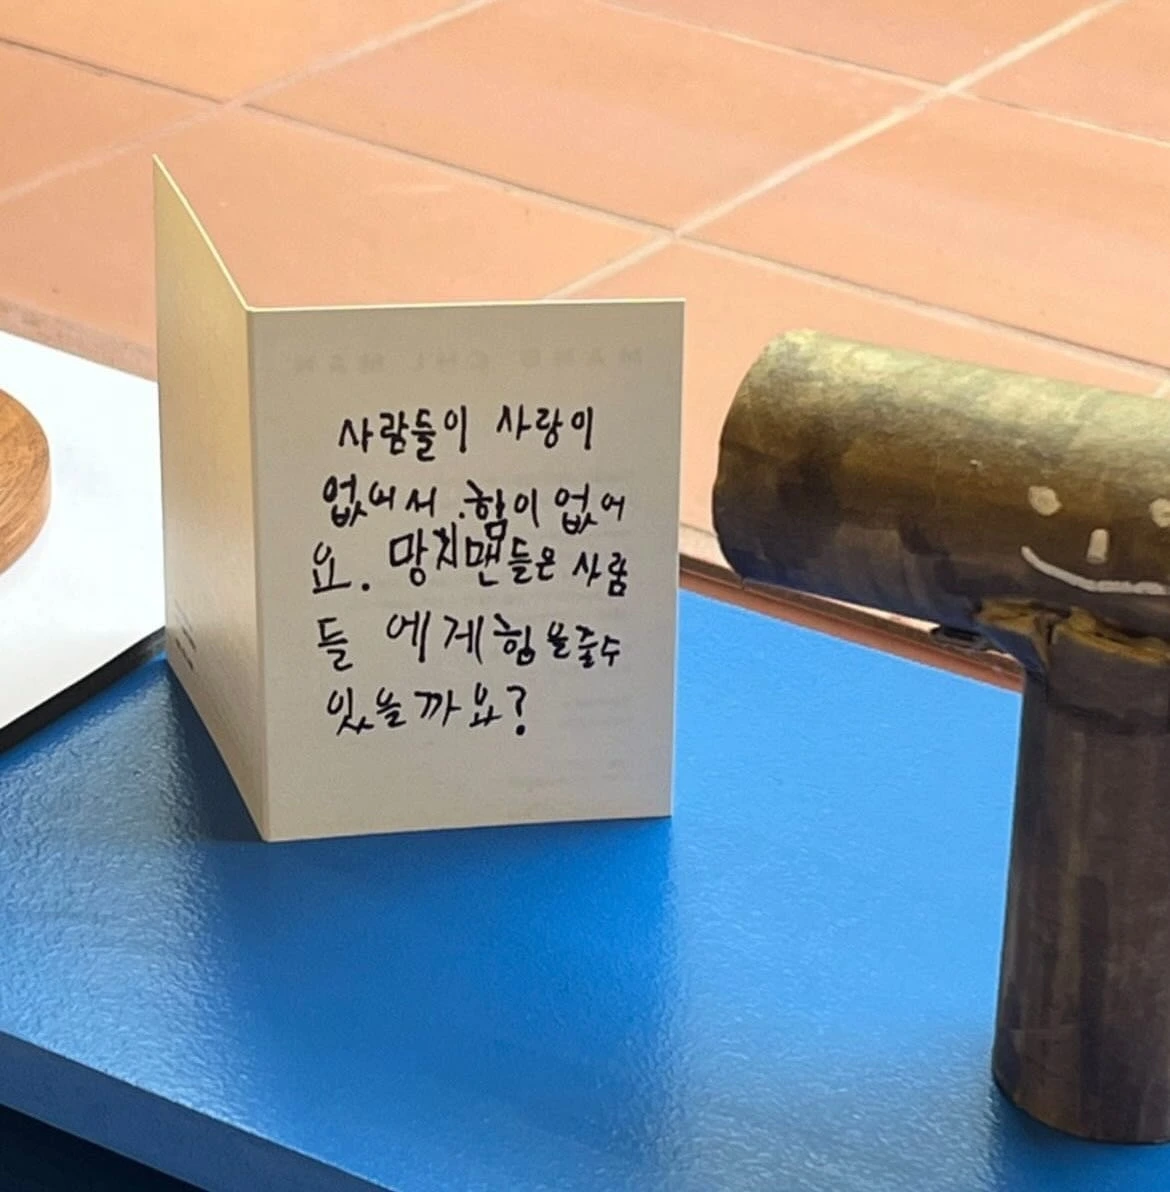 사람들이 사랑이
없어서 힘이 없어
요. 망치맨들은 사람
들 에게 힘을줄수
있을까요?